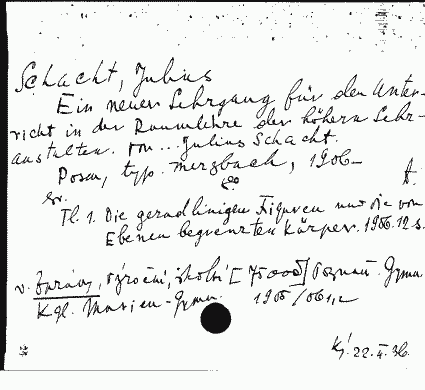 Schacht, Julius
Ein neuer Lehrgang für den Unter-
richt in der Raumlehre der höhern Lehr-
anstalten. von ... Julius Schacht.
Posen, typ. Merzbach, 1906-
8°
A.
sv.
Tl. 1. Die geradlinigen Figuren und die von
Ebenen begrenzten Körper. 1906. 12 s.
v. Zprávy, výroční, školní [75000] Poznań. Gymn.
Kgl. Marien-Gymn. 1905/06
22.II.36